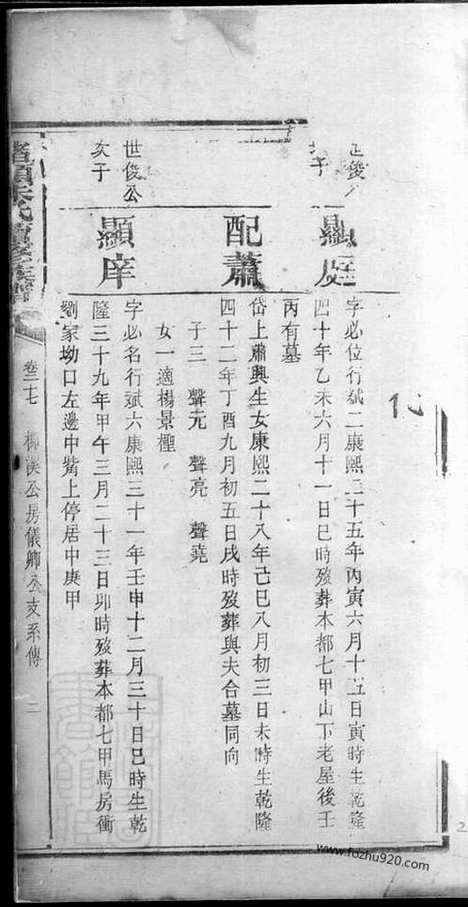 世俊公
子
顯庭
字必位行斌二康熙二十五年丙寅六月十五日寅時生乾隆
四十年乙未六月十一日巳時歿葬本都七甲山下老屋後壬
丙有墓
配蕭
岱上蕭興生女康熙二十八年己巳八月初三日未時生乾隆
四十二年丁酉九月初五日戌時歿葬與夫合墓同向
子三 聲元 聲亮 聲堯
女一適楊景檉
世俊公
次子
顯庠
字必名行斌六康熙三十一年壬申十二月三十日巳時生乾
隆三十九年甲午三月二十三日卯時歿葬本都七甲馬房衝
劉家坳口左邊中嘴上停居中庚甲
卷二七 柳溪公房儀卿公支系傳 二
www.fozhu920.com